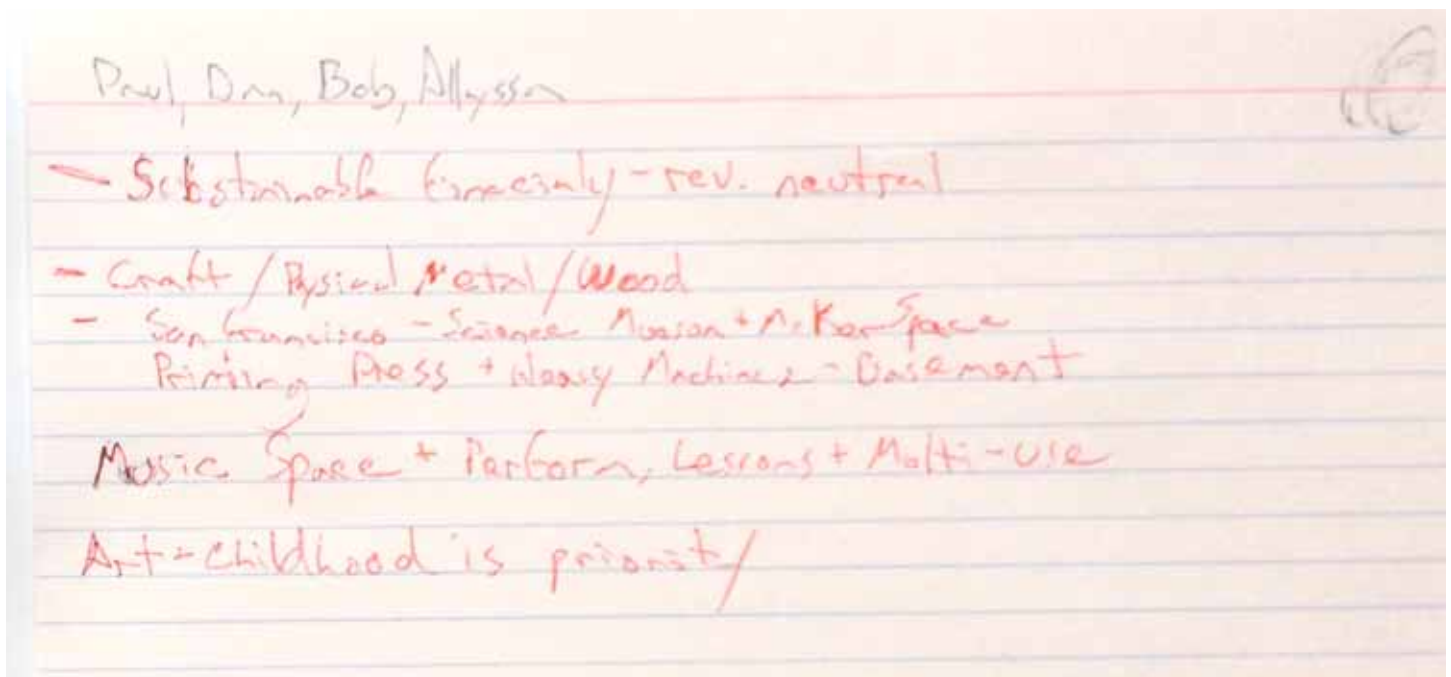 Paul, Dan, Bob, Allysson
- Sustainable - rev. neutral
- Craft / Pysical Metal / Wood
- San Francisco - Science + Maker Space
Printing Press + Heavy Machines - Basement
Music Space + Perform, Lessons + Multi-use
Art - Childhood is priority